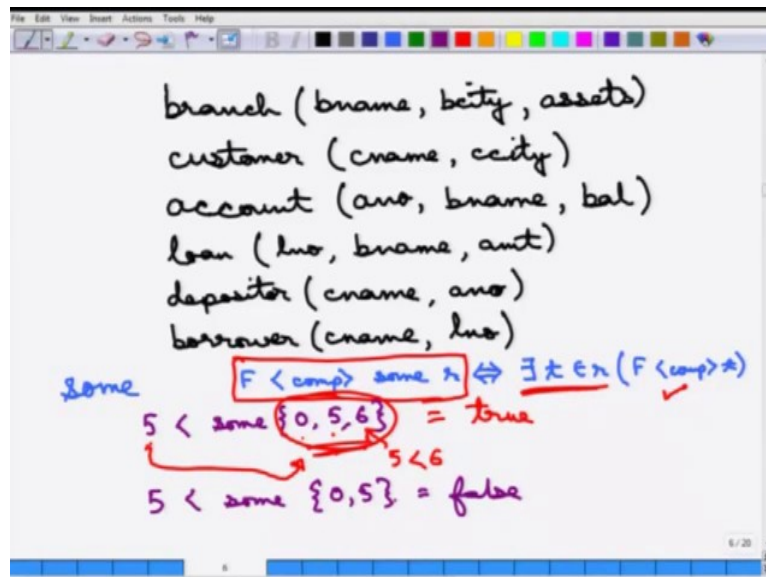 File Edit View Insert Actions Tools Help
branch (bname, bcity, assets)
customer (cname, ccity)
account (ano, bname, bal)
loan (lno, bname, amt)
depositor (cname, ano)
borrower (cname, lno)
some F <comp> some r ⇔ ∃ t ∈ r (F <comp> t)
5 < some {0, 5, 6} = true
5 < 6
5 < some {0, 5} = false
6 / 20
6